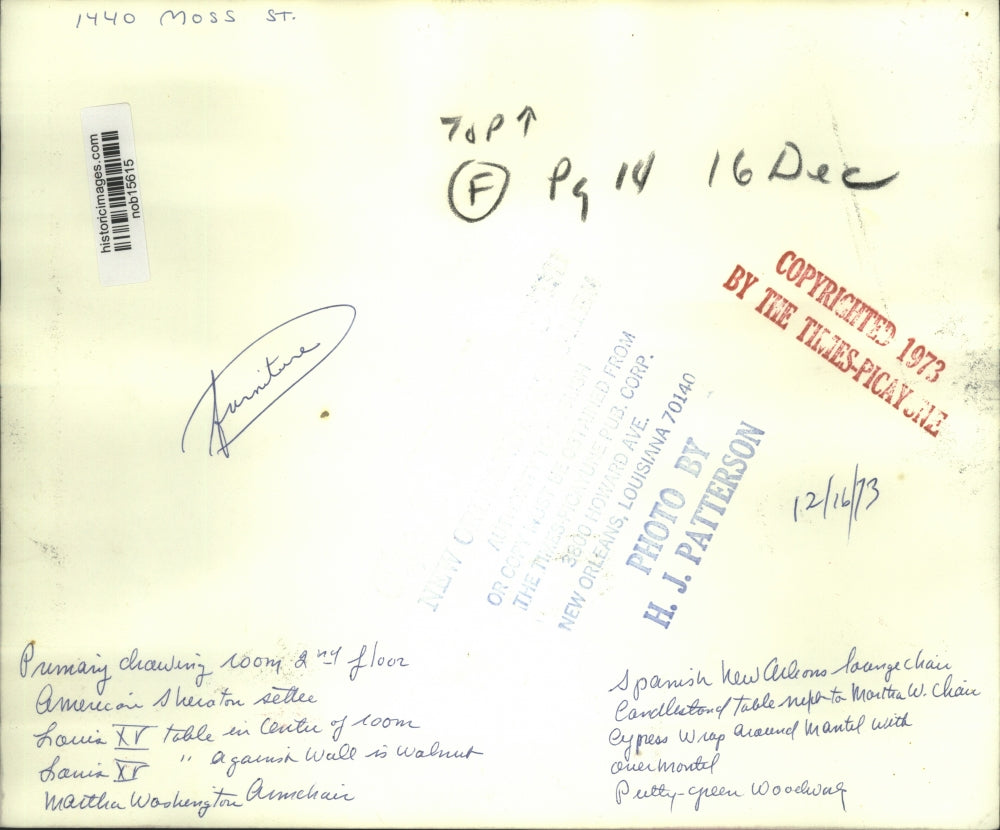 1440 MOSS ST.
historicimages.com
nob15615
TOP ↑
F Pg 14 16 Dec
COPYRIGHTED 1973
BY THE TIMES-PICAYUNE
Furniture
NEW
OR COPY MUST BE OBTAINED FROM
THE TIMES-PICAYUNE PUB. CORP.
3800 HOWARD AVE.
NEW ORLEANS, LOUISIANA 70140
PHOTO BY
H. J. PATTERSON
12/16/73
Primary drawing room, 2nd floor
American Sheraton settee
Louis XV table in center of room
Louis XV " against wall is walnut
Martha Washington Armchair
Spanish New Orleans lounge chair
Candlestand table next to Martha W. Chair
Cypress Wrap around Mantel with
overmantel
Putty-green Woodwork